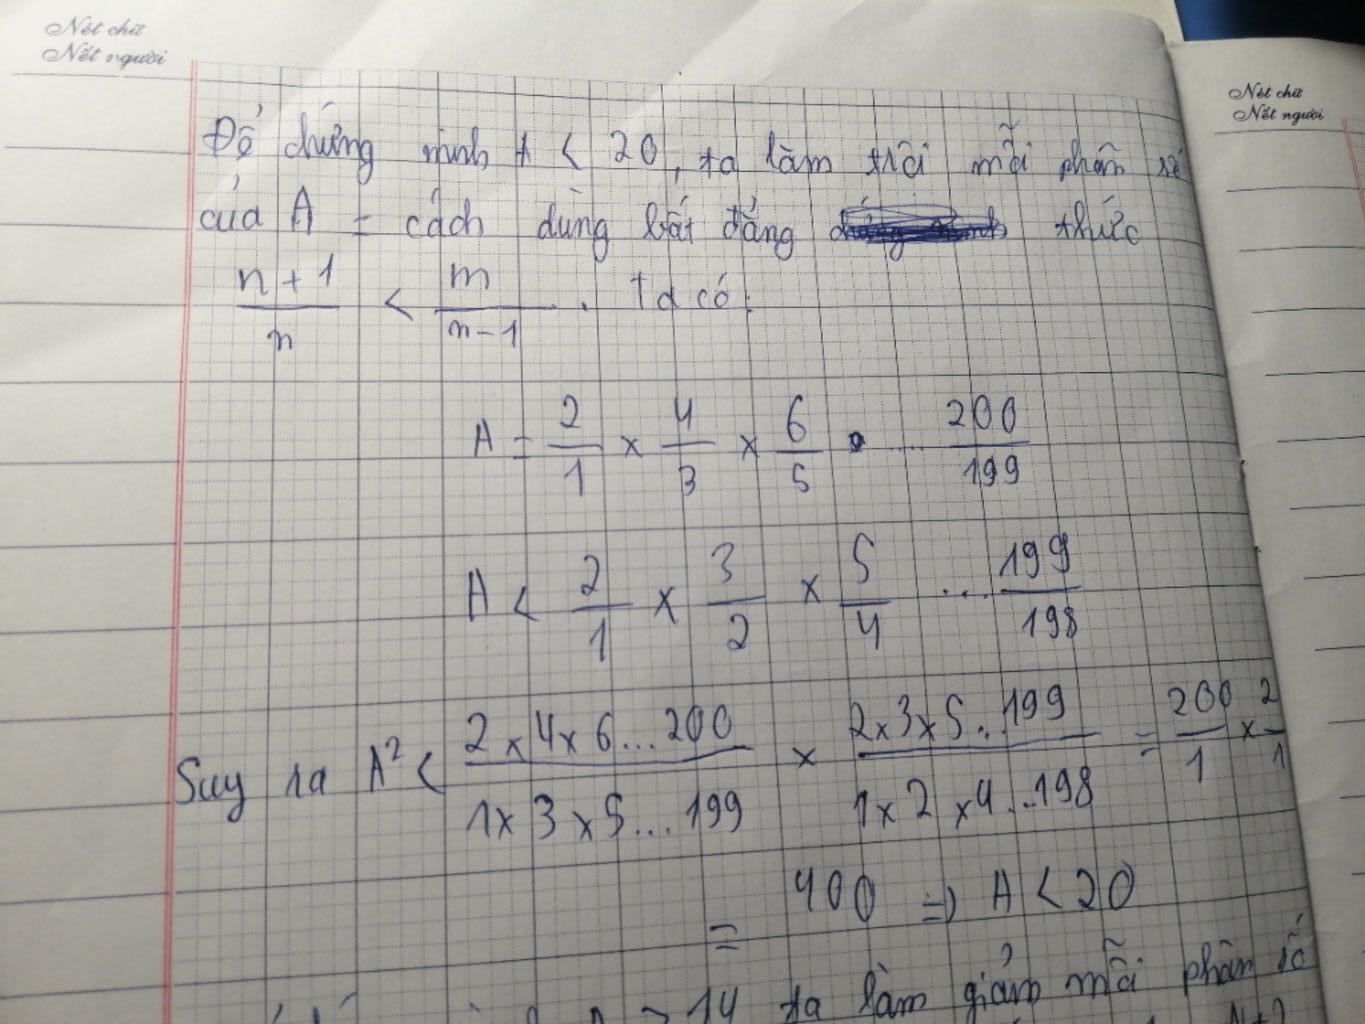 Nét chữ
Nết người
Nét chữ
Nết người
Để chứng minh A < 20, ta làm trội mỗi phân số
của A = cách dùng bất đẳng thức
n + 1 / n < n / n - 1 . Ta có:
A = 2/1 × 4/3 × 6/5 . ... 200/199
A < 2/1 × 3/2 × 5/4 ... 199/198
Suy ra A² < 2 × 4 × 6 ... 200 / 1 × 3 × 5 ... 199 × 2 × 3 × 5 ... 199 / 1 × 2 × 4 ... 198 = 200/1 × 2/1
= 400 => A < 20
> 14 ta làm giảm mỗi phân số